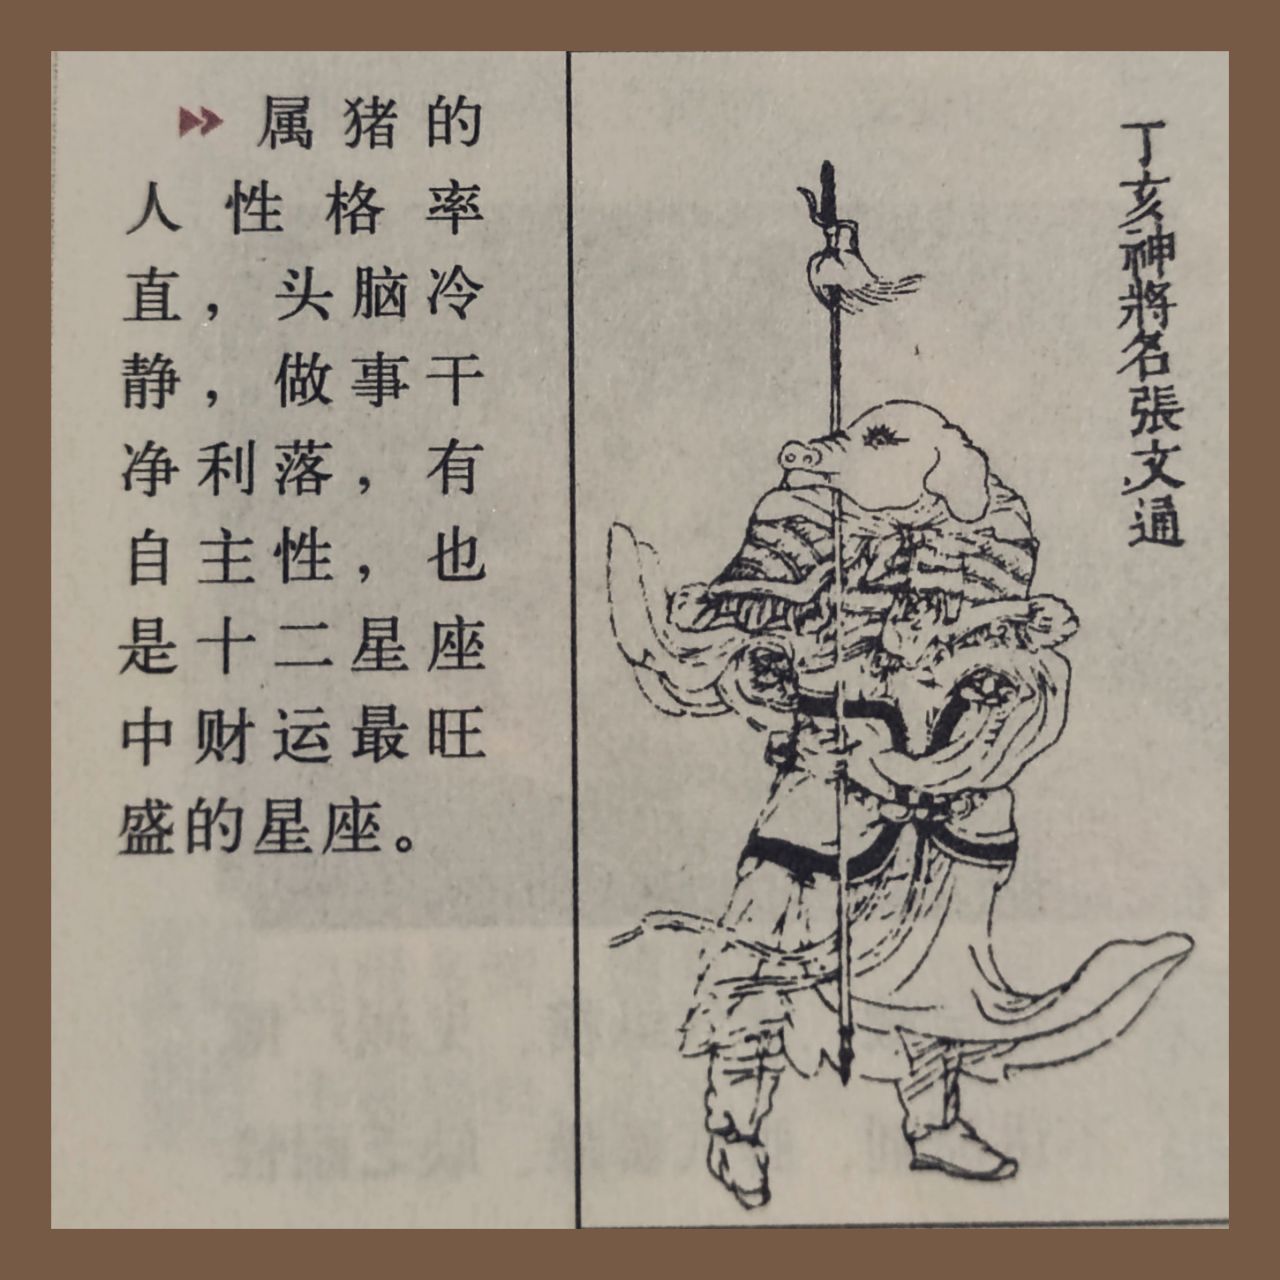 属猪的
人性格率
直，头脑冷
静，做事干
净利落，有
自主性，也
是十二星座
中财运最旺
盛的星座。
丁亥神將名張文通